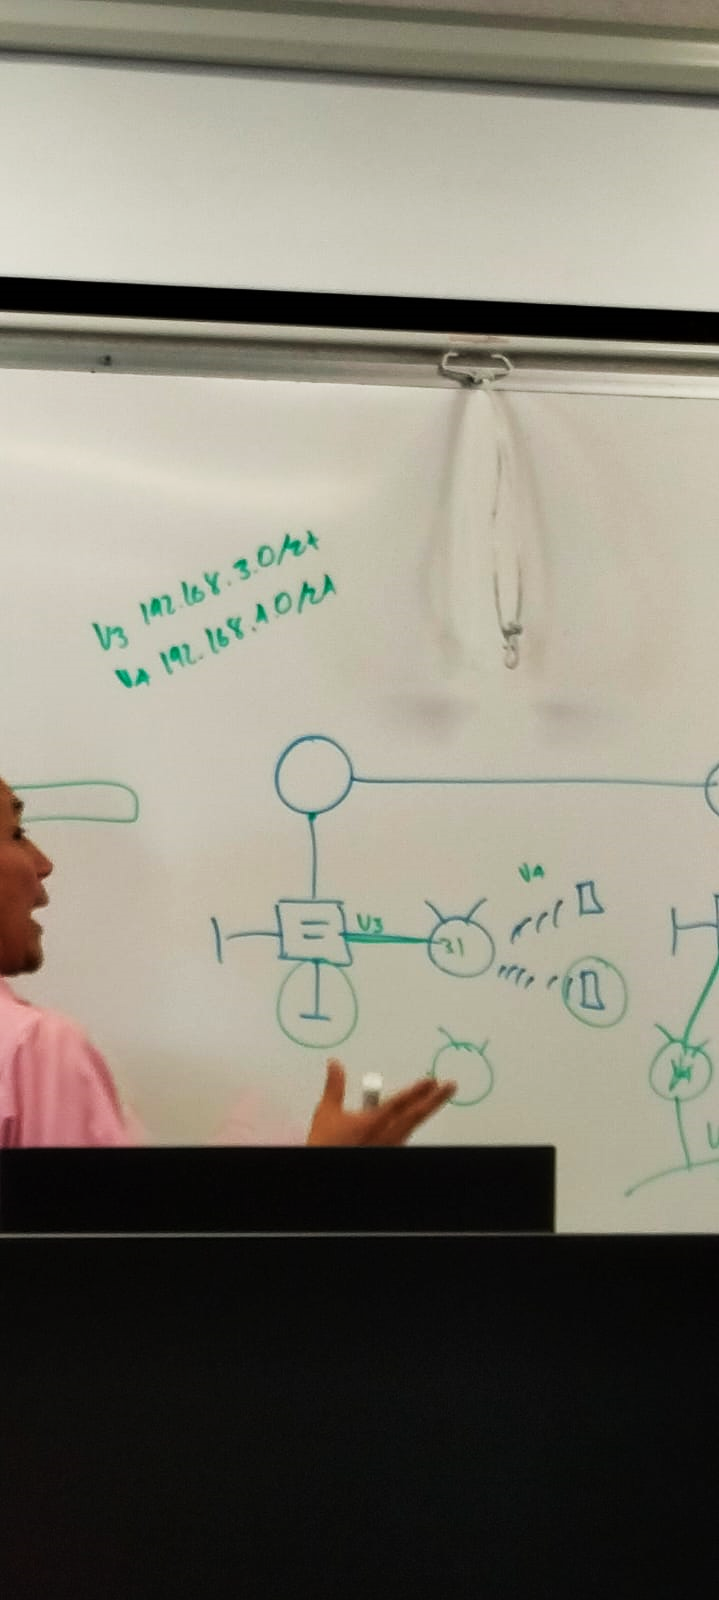 V3 192.168.3.0/24
V4 192.168.4.0/24
V4
V3
31